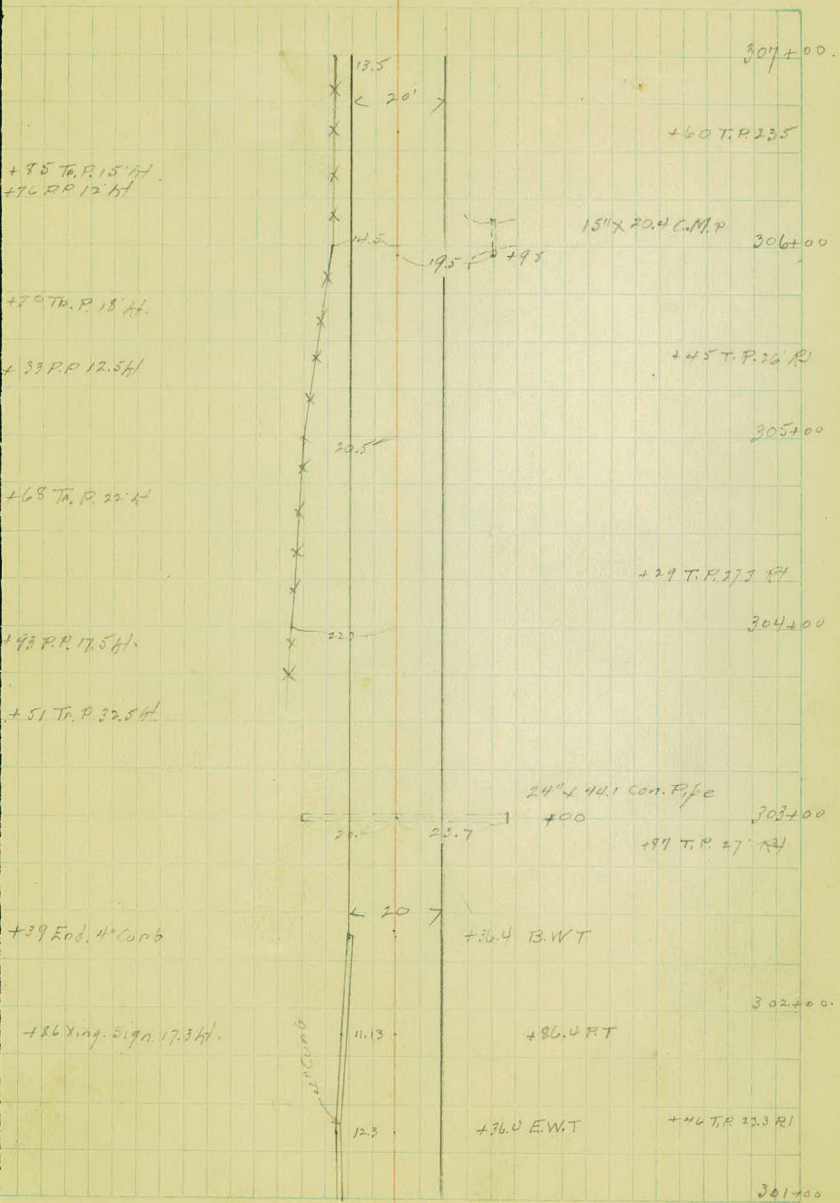 307+00.
13.5
20'
+60 T.P. 23.5
+85 Te.P. 15' Lt.
+76 P.P. 12' Lt
15" X 20.4 C.M.P
14.5
306+00
19.5
+95
+70 Te. P. 18' Lt.
+45 T.P. 26' Rt
+33 P.P. 12.5 Lt
305+00
20.5'
+68 Te. P. 22' Lt
+29 T.P. 27.3 Rt
304+00
+93 P.P. 17.5 Lt.
+51 Te. P. 32.5 Lt
24" X 44.1 Con. Pipe
+00
303+00
20.4
23.7
+87 T.P. 27' Rt
20
+39 End. 4" Curb
+36.4 B.W.T
302+00.
+86 Xing. Sign. 17.3 Lt.
11.13
+86.4 P.T
4" Curb
12.3
+36.0 E.W.T
+46 T.P. 22.3 Rt
301+00